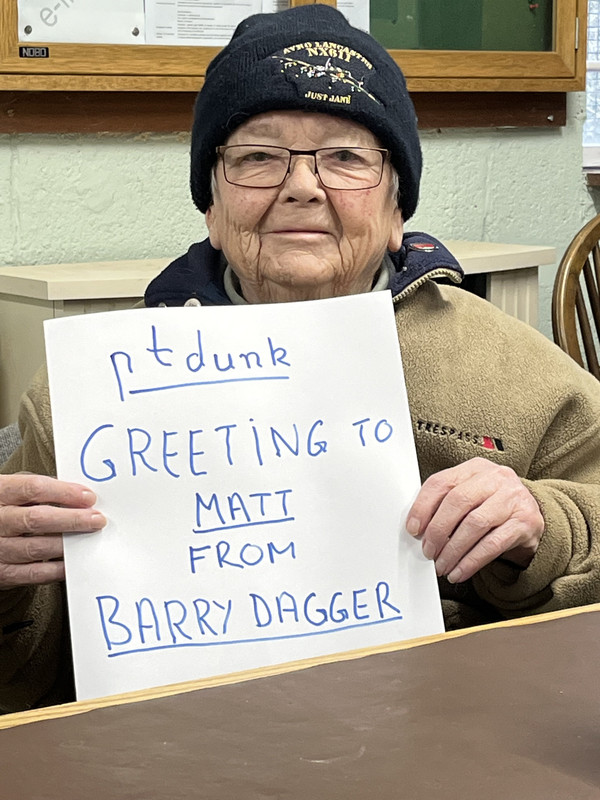 NOBO
AVRO LANCASTER
NX611
JUST JANE
ptdunk
GREETING TO
MATT
FROM
BARRY DAGGER
TRESPASS